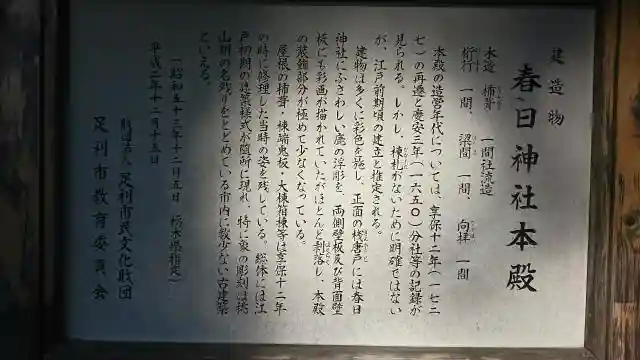 建造物
春日神社本殿
木造 杮葺 一間社流造
桁行 一間、 梁間 一間、 向拝 一間
本殿の造営年代については、享保十二年(一七二
七)の再遷と慶安三年(一六五〇)分社等の記録が
見られる。しかし、棟札がないために明確ではない
が、江戸前期頃の建立と推定される。
建物は多くに彩色を施し、正面の桟唐戸には春日
神社にふさわしい鹿の浮彫を、両側壁板及び背面壁
板にも彩画が描かれていたがほとんど剥落し、本殿
の装飾部分が極めて少なくなっている。
屋根の杮葺・棟端鬼板・大棟箱棟等は享保十二年
の時に修理した当時の姿を残している。総体には江
戸初期の建築様式が随所に現れ、特に象の彫刻は桃
山期の名残りをとどめている市内に数少ない古建築
といえる。
(昭和五十三年十二月五日 栃木県指定)
平成二年十二月十五日
財団法人 足利市民文化財団
足利市教育委員会